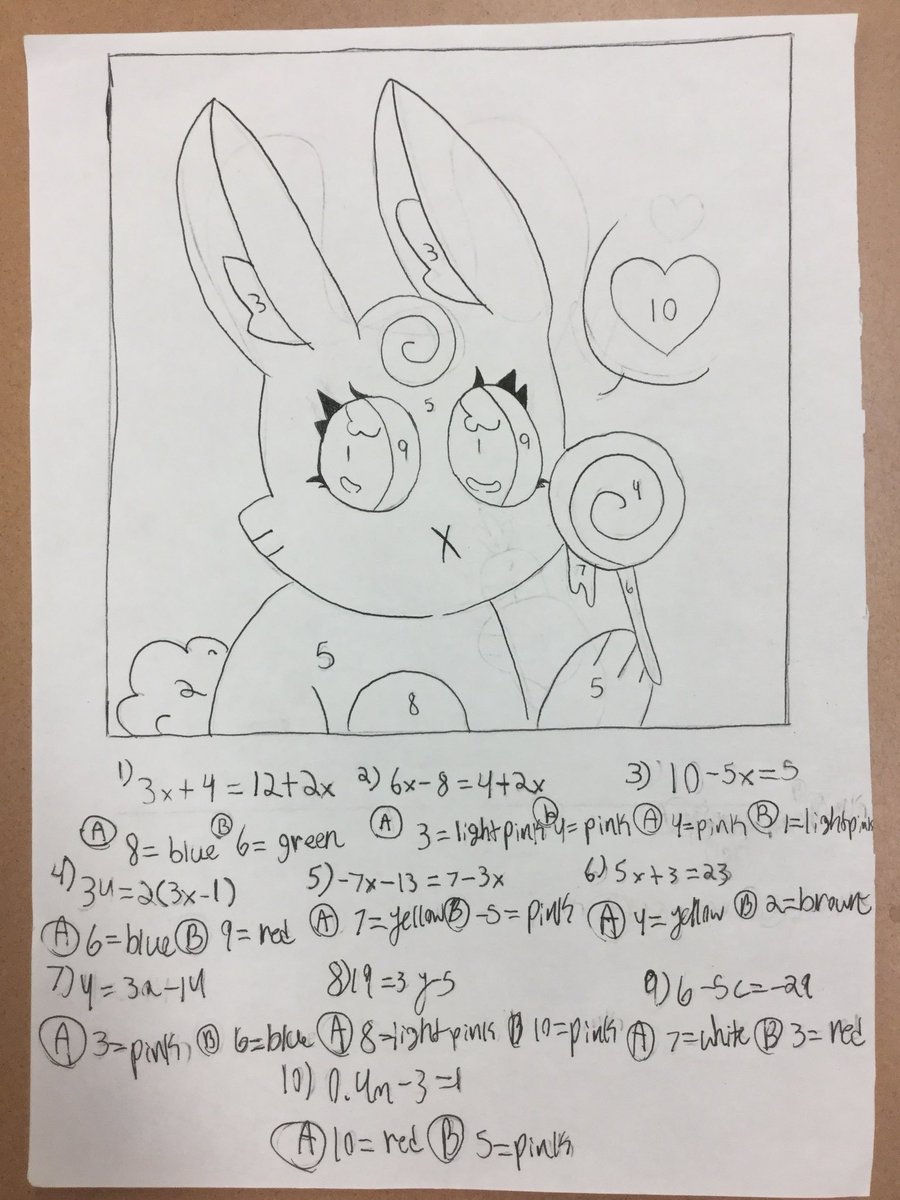 3
3
10
5
1 9
1 9
4
7
6
X
5
2
8
5
1) 3x+4=12+2x 2) 6x-8=4+2x 3) 10-5x=5
A 8=blue B 6=green A 3=lightpink b 4=pink A 4=pink B 1=lightpink
4) 34=2(3x-1) 5) -7x-13=7-3x 6) 5x+3=23
A 6=blue B 9=red A 7=yellow B -5=pink A 4=yellow B 2=brown
7) 4=3a-14 8) 19=3y-5 9) 6-5c=-29
A 3=pink B 6=blue A 8=lightpink B 10=pink A 7=white B 3=red
10) 0.4n-3=1
A 10=red B 5=pink